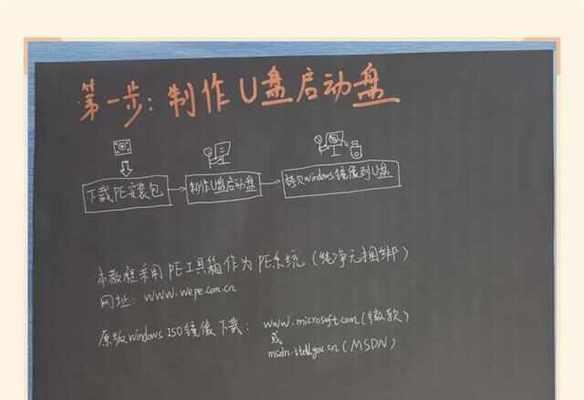 第一步：制作U盘启动盘
下载PE安装包
制作U盘启动盘
拷贝windows镜像到U盘
本教程采用PE工具箱作为PE系统（纯净无捆绑）
网址：www.wepe.com.cn
原版windows ISO镜像下载：www.microsoft.com（微软）
或
（MSDN）